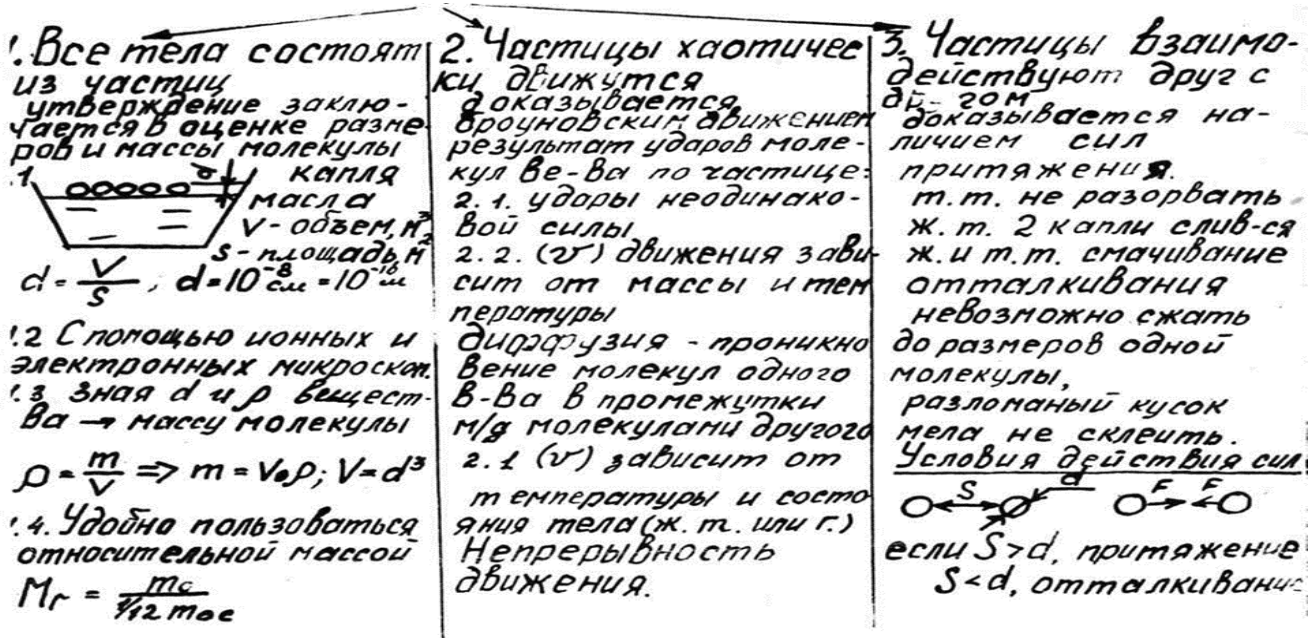 1. Все тела состоят
из частиц
утверждение заклю-
чается в оценке разме
ров и массы молекулы
.1
капля
масла
V - объем, м³
S - площадь, м²
d = V/S , d = 10⁻⁸ см = 10⁻¹⁰ м
1.2 С помощью ионных и
электронных микроскоп.
1.3 Зная d и ρ вещест-
ва → массу молекулы
ρ = m/V ⇒ m = V₀ρ; V = d³
1.4. Удобно пользоваться
относительной массой
Mr = / 1/12 m
2. Частицы хаотичес
ки движутся
доказывается
броуновским движением
результат ударов моле-
кул ве-ва по частице:
2.1. удары неодинако-
вой силы
2.2. (v) движения зави-
сит от массы и тем
пературы
диффузия - проникно
вение молекул одного
в-ва в промежутки
м/д молекулами другого
2.1 (v) зависит от
температуры и состо
яния тела (ж. т. или г.)
Непрерывность
движения.
3. Частицы взаимо-
действуют друг с
др-гом
доказывается на-
личием сил
притяжения.
т.т. не разорвать
ж.т. 2 капли слив-ся
ж. и т.т. смачивание
отталкивания
невозможно сжать
до размеров одной
молекулы,
разломаный кусок
мела не склеить.
Условия действия сил
S d F F
если S > d, притяжение
S < d, отталкивание